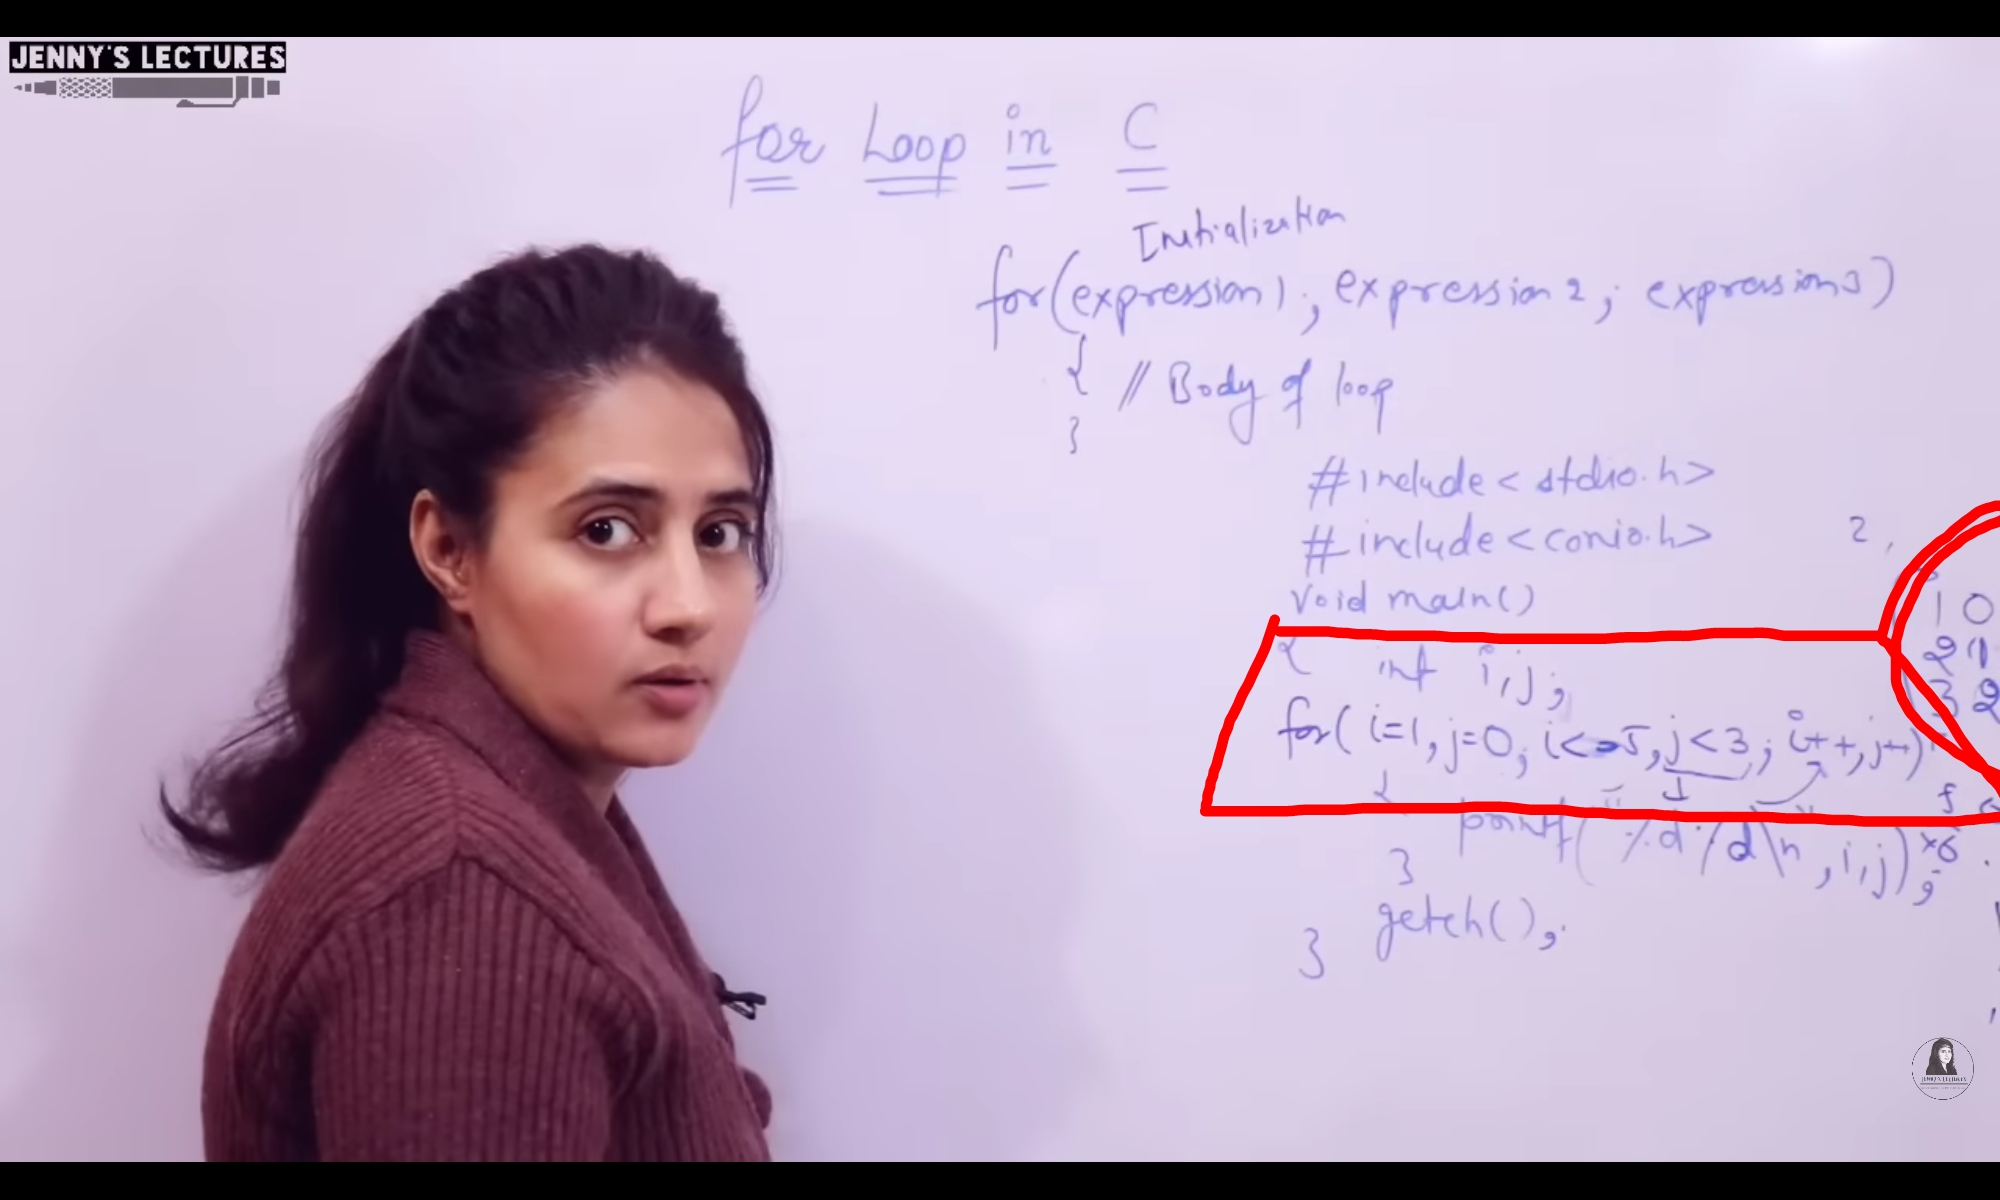 JENNY'S LECTURES
for Loop in C
Initialization
for(expression1; expression2; expression3)
{ // Body of loop
}
#include<stdio.h>
#include<conio.h>
void main()
{ int i,j;
for(i=1,j=0; i<=5,j<3; i++,j++)
{
printf("%d%d\n",i,j);
}
getch();
}
2,
1 0
2 1
3 2